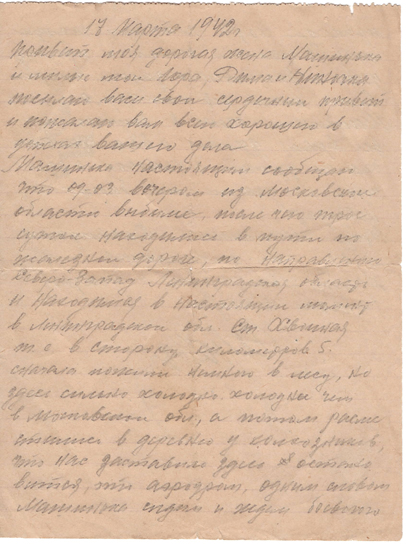 17 марта 1942 г
Привет моя дорогая жена Машинька
и милые мои Вова, Дима и Ниночка
посылаю вам свой сердечный привет
и желаю вам всего хорошего в
вашего дела
Машинька настоящим сообщаю
что 09-03 вечером из Московской
области выбыли, там чего трое
суток находились в пути по
железной дороге, по направлению
Северо Запад Ленинградская область
и находимся в настоящий момент
в Ленинградской обл. ст. Хвойная
т.е. в сторону километров 5.
сначала пожили немного в лесу, но
здесь сильно холодно холодней чем
в Московской обл, а потом разме
стились в деревню у колхозников,
что нас заставило здесь остано
виться, это аэродром, одним словом
Машинька сидим и ждем боевого